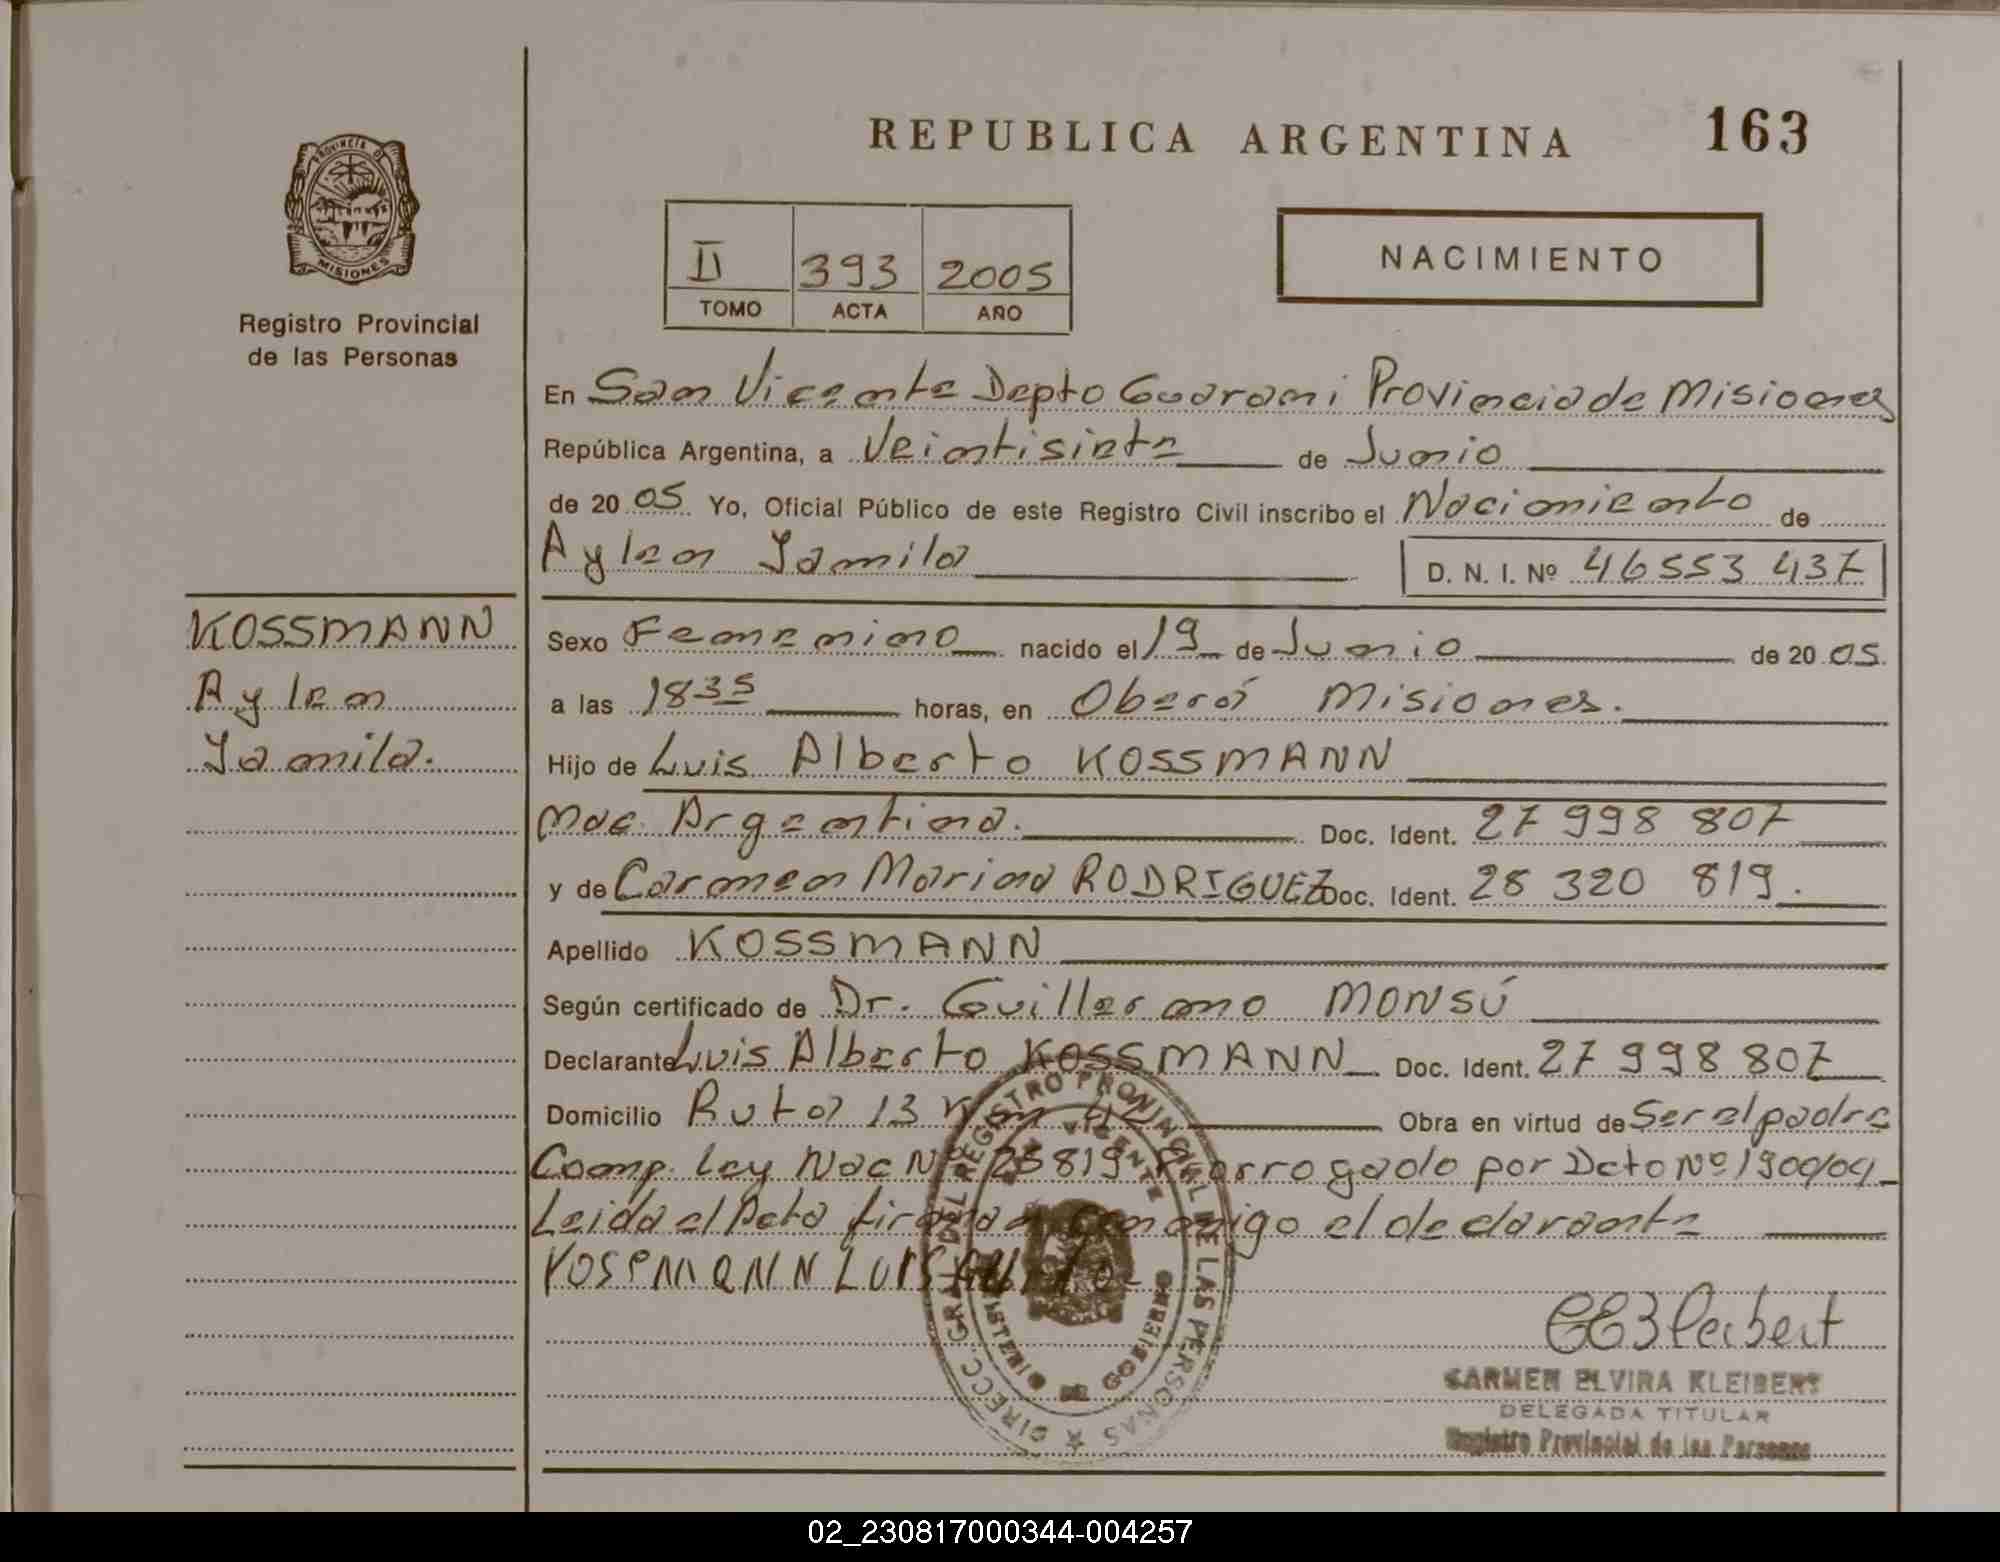 REPUBLICA ARGENTINA
163
PROVINCIA DE
MISIONES
Registro Provincial
de las Personas
II 393 2005
TOMO ACTA AÑO
NACIMIENTO
En San Vicente Depto Guarani Provincia de Misiones
República Argentina, a Veintisiete de Junio
de 2005 Yo, Oficial Público de este Registro Civil inscribo el Nacimiento de
Aylen Jamila
D. N. I. Nº 46553 437
KOSSMANN
Aylen
Jamila.
Sexo Femenino nacido el 19 de Junio de 2005.
a las 1835 horas, en Oberá Misiones.
Hijo de Luis Alberto KOSSMANN
Nac. Argentina. Doc. Ident. 27 998 807
y de Carmen Marina RODRIGUEZ Doc. Ident. 28 320 819.
Apellido KOSSMANN
Según certificado de Dr. Guillermo MONSÚ
Declarante Luis Alberto KOSSMANN Doc. Ident. 27 998 807
Domicilio Ruta 13 Km Obra en virtud de Ser el padre
Comp. Ley Nac Nº 25819 Prorrogado por Dcto Nº 1900/04
Leida el Acta firma conmigo el declarante
LUIS
DIRECC. GRAL. DEL REGISTRO PROVINCIAL DE LAS PERSONAS
SAN VICENTE
MINISTERIO DE GOBIERNO
CARMEN ELVIRA KLEIBERT
DELEGADA TITULAR
Registro Provincial de las Personas
02_230817000344-004257